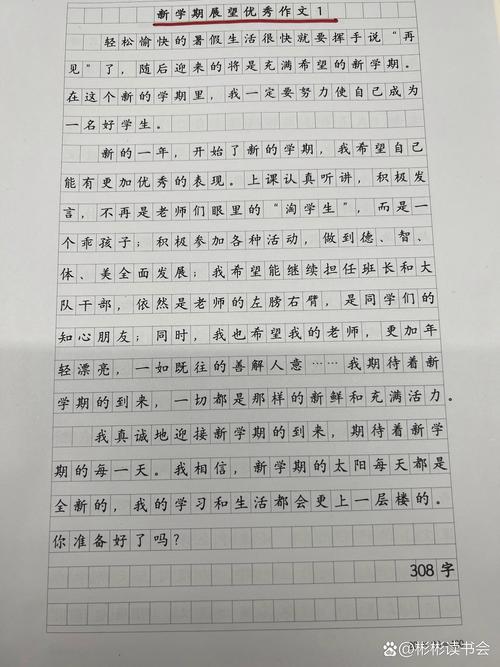 新学期展望优秀作文1
轻松愉快的暑假生活很快就要挥手说“再
见”了，随后迎来的将是充满希望的新学期。
在这个新的学期里，我一定要努力使自己成为
一名好学生。
新的一年，开始了新的学期，我希望自己
能有更加优秀的表现。上课认真听讲，积极发
言，不再是老师们眼里的“淘学生”，而是一
个乖孩子；积极参加各种活动，做到德、智、
体、美全面发展；我希望能继续担任班长和大
队干部，依然是老师的左膀右臂，是同学们的
知心朋友；同时，我也希望我的老师，更加年
轻漂亮，一如既往的善解人意……我期待着新
学期的到来，一切都是那样的新鲜和充满活力。
我真诚地迎接新学期的到来，期待着新学
期的每一天。我相信，新学期的太阳每天都是
全新的，我的学习和生活都会更上一层楼的。
你准备好了吗？
308字
@彬彬读书会